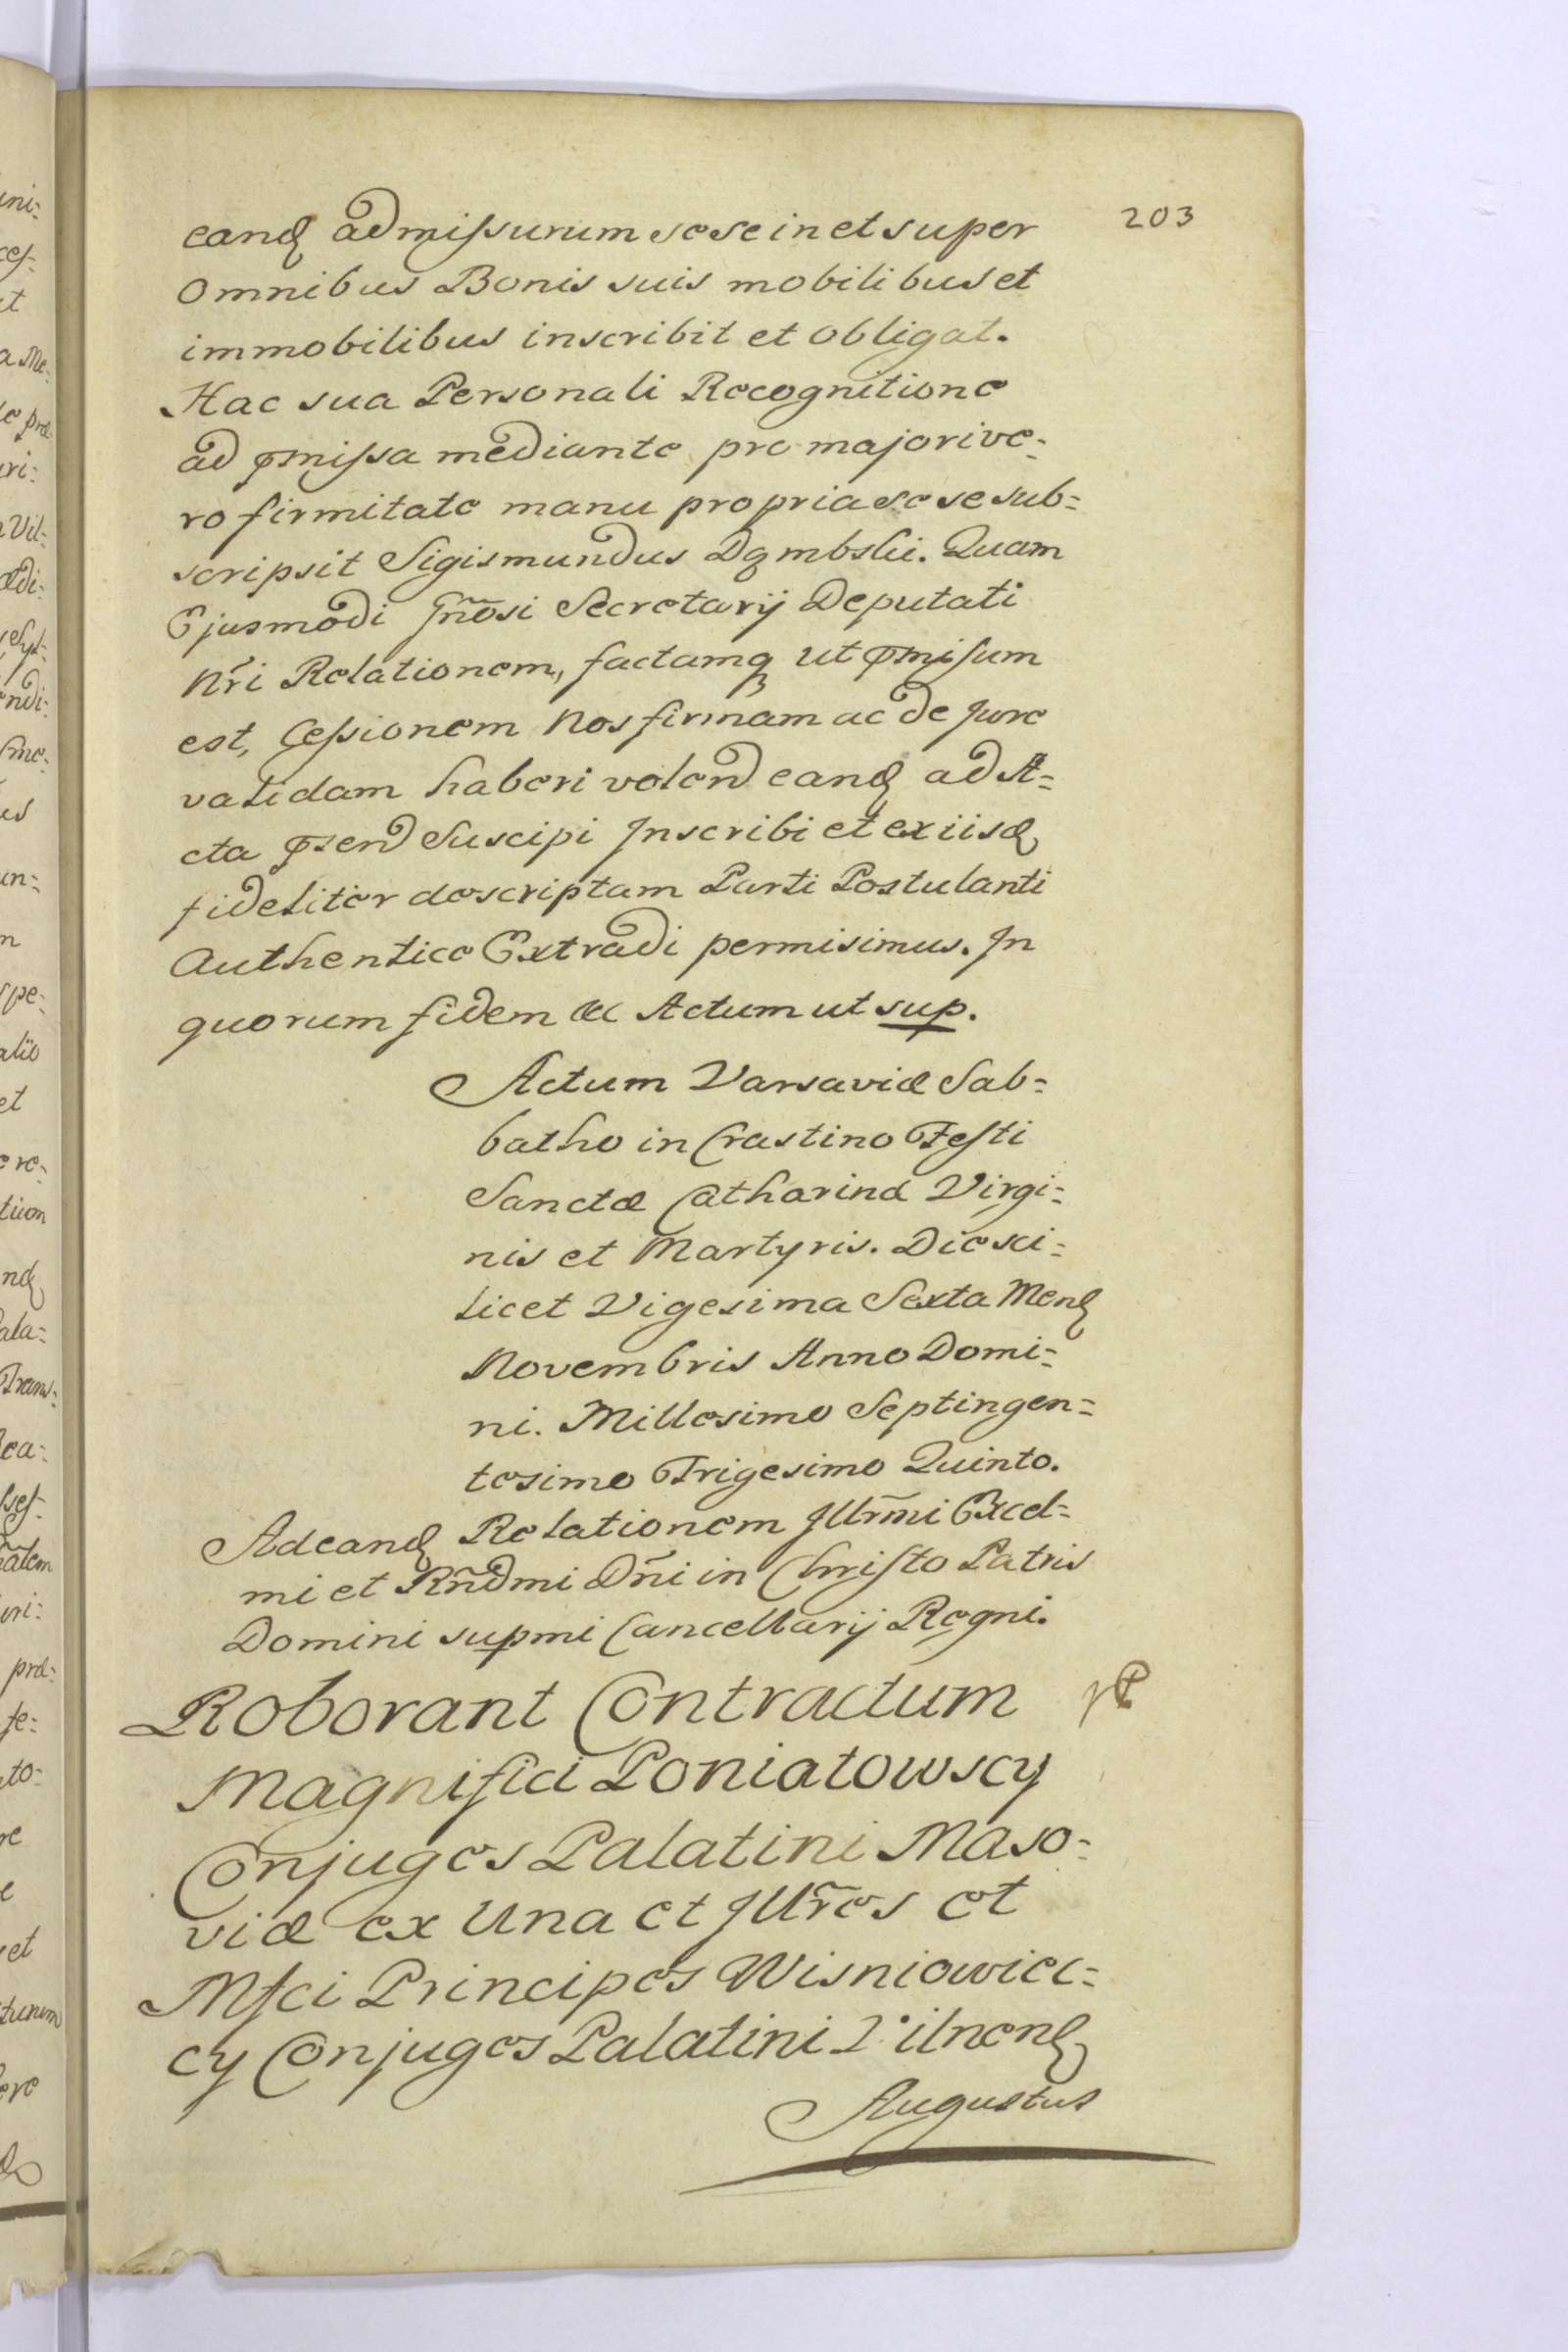 203
eand admissurum sese in et super
Omnibus Bonis suis mobilibus et
immobilibus inscribit et obligat.
Hac sua Personali Recognitione
ad pmissa mediante pro majori ve=
ro firmitate manu propria sese sub=
scripsit Sigismundus Dąmbski. Quam
Ejusmodi Gnõsi Secretarij Deputati
Nri Relationem, factamq ut pmisum
est, Cessionem Nos firmam ac de Jure
validam haberi volend eand ad A=
cta psend Suscipi Inscribi et ex iisd
fideliter descriptam Parti Postulanti
Authentice Extradi permisimus. In
quorum fidem &c Actum ut sup.
Actum Varsaviæ Sab=
batho in Crastino Festi
Sanctæ Catharinæ Virgi=
nis et Martyris. Die sci=
licet Vigesima Sexta Mens
Novembris Anno Domi=
ni. Millesimo Septingen=
tesimo Trigesimo Quinto.
Ad eand Relationem Jllrmi Excel=
mi et Rñdmi Dñi in Christo Patris
Domini supmi Cancellarij Regni.
Roborant Contractum
Magnifici Poniatowscy
Conjuges Palatini Maso=
viæ ex Una et Jllr̃es et
Mfci Principes Wisniowiec=
cy Conjuges Palatini Vilnens
Augustus